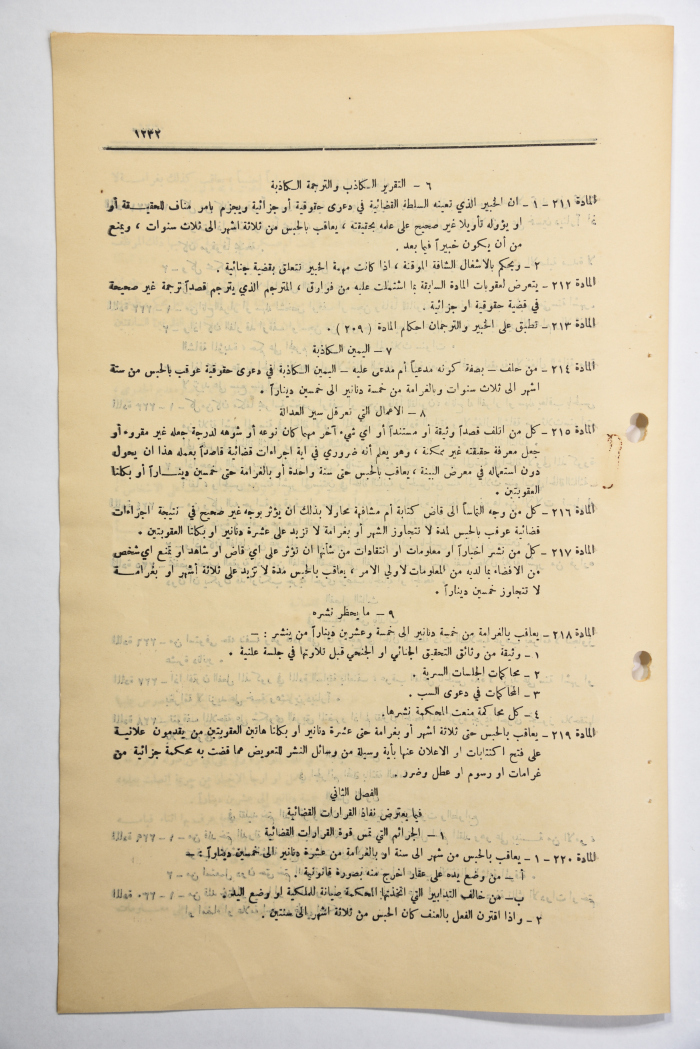 ١٢٣٣
٦ - التقرير الكاذب والترجمة الكاذبة
المادة ٢١١ - ١ - ان الخبير الذي تعينه السلطة القضائية في دعوى حقوقية أو جزائية ويجزم بامر مناف للحقيقة أو
او يؤوله تأويلا غير صحيح على علمه بحقيقته ، يعاقب بالحبس من ثلاثة اشهر الى ثلاث سنوات ، ويمنع
من أن يكون خبيراً فيما بعد .
٢ - ويحكم بالاشغال الشاقة الموقتة ، اذا كانت مهمة الخبير تتعلق بقضية جنائية .
المادة ٢١٢ - يتعرض لعقوبات المادة السابقة بما اشتملت عليه من فوارق ، المترجم الذي يترجم قصداً ترجمة غير صحيحة
في قضية حقوقية او جزائية .
المادة ٢١٣ - تطبق على الخبير والترجمان احكام المادة ( ٢٠٩ ) .
٧ - اليمين الكاذبة
المادة ٢١٤ - من حلف - بصفة كونه مدعياً أم مدعى عليه - اليمين الكاذبة في دعوى حقوقية عوقب بالحبس من ستة
اشهر الى ثلاث سنوات وبالغرامة من خمسة دنانير الى خمسين ديناراً .
٨ - الاعمال التي تعرقل سير العدالة
المادة ٢١٥ - كل من اتلف قصداً وثيقة أو مستنداً أو اي شيء آخر مهما كان نوعه أو شوهه لدرجة جعله غير مقروء أو
جعل معرفة حقيقته غير ممكنة ، وهو يعلم أنه ضروري في اية اجراءات قضائية قاصداً بعمله هذا ان يحول
دون استعماله في معرض البينة ، يعاقب بالحبس حتى سنة واحدة أو بالغرامة حتى خمسين دينــاراً أو بكلتا
العقوبتين .
المادة ٢١٦ - كل من وجه التماساً الى قاض كتابة أم مشافهة محاولا بذلك ان يؤثر بوجه غير صحيح في نتيجة اجراءات
قضائية عوقب بالحبس لمدة لا تتجاوز الشهر أو بغرامة لا تزيد على عشرة دنانير او بكلتا العقوبتين .
المادة ٢١٧ - كل من نشر اخباراً او معلومات او انتقادات من شأنها ان تؤثر على اي قاض او شاهد او تمنع اي شخص
من الافضاء بما لديه من المعلومات لاولي الامر ، يعاقب بالحبس مدة لا تزيد على ثلاثة أشهر او بغرامــة
لا تتجاوز خمسين ديناراً .
٩ - ما يحظر نشره
المادة ٢١٨ - يعاقب بالغرامة من خمسة دنانير الى خمسة وعشرين ديناراً من ينشر : -
١ - وثيقة من وثائق التحقيق الجنائي او الجنحي قبل تلاوتها في جلسة علنية .
٢ - محاكمات الجلسات السرية .
٣ - المحاكمات في دعوى السب .
٤ - كل محاكمة منعت المحكمة نشرها .
المادة ٢١٩ - يعاقب بالحبس حتى ثلاثة اشهر أو بغرامة حتى عشرة دنانير او بكلتا هاتين العقوبتين من يقدمون علانيـة
على فتح اكتتابات او الاعلان عنها بأية وسيلة من وسائل النشر للتعويض عما قضت به محكمة جزائية من
غرامات او رسوم او عطل وضرر .
الفصل الثاني
فيما يعترض نفاذ القرارات القضائية
١ - الجرائم التي تمس قوة القرارات القضائية
المادة ٢٢٠ - ١ - يعاقب بالحبس من شهر الى سنة او بالغرامة من عشرة دنانير الى خمسين ديناراً : -
أ - من وضع يده على عقار اخرج منه بصورة قانونية .
ب - من خالف التدابير التي اتخذتها المحكمة صيانة للملكية او وضع اليد .
٢ - واذا اقترن الفعل بالعنف كان الحبس من ثلاثة اشهر الى سنتين .